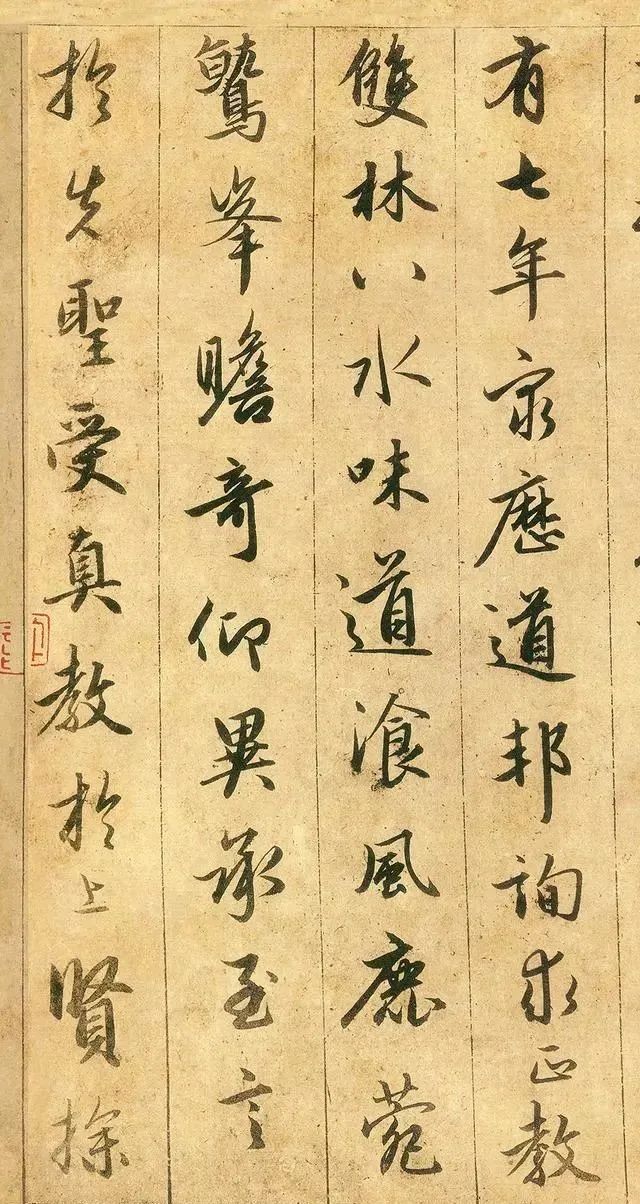 有七年窮歷道邦詢求正教
雙林八水味道飡風鹿菀
鷲峯瞻奇仰異承至言
於先聖受真教於上賢探